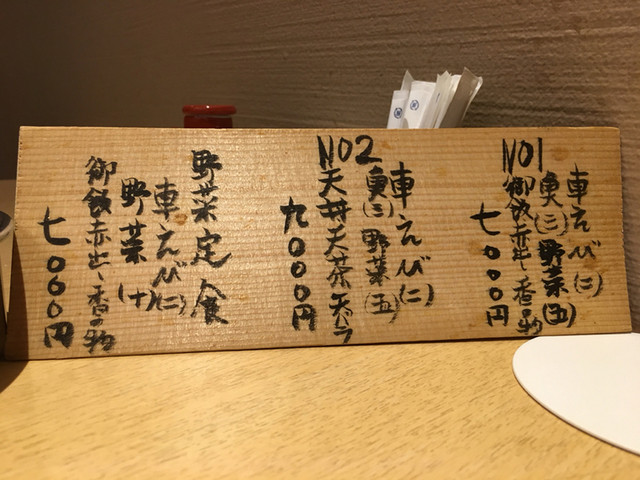 NO1
車えび(二)
魚(三)野菜(五)
御飯赤出し香の物
七000円
NO2
車えび(二)
魚(三)野菜(五)
天丼天茶天バラ
九000円
野菜定食
車えび(二)
野菜(十)
御飯赤出し香の物
七000円